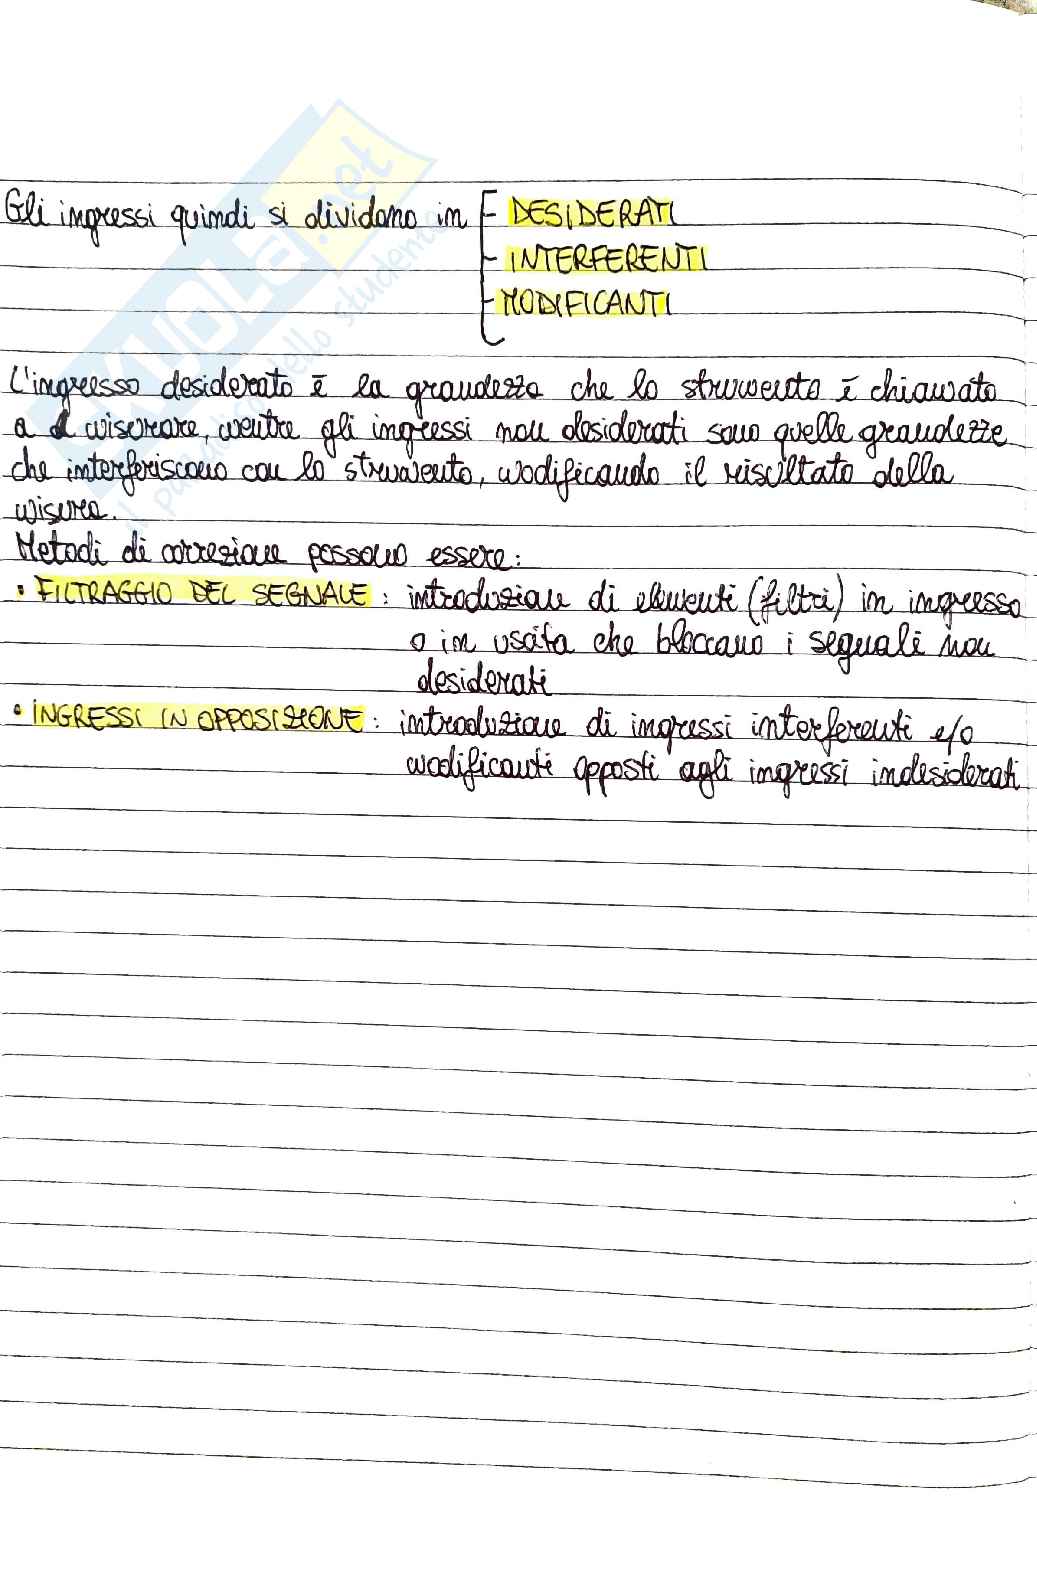 Gli ingressi quindi si dividono in
- DESIDERATI
- INTERFERENTI
- MODIFICANTI
L'ingresso desiderato è la grandezza che lo strumento è chiamato
a misurare, mentre gli ingressi non desiderati sono quelle grandezze
che interferiscono con lo strumento, modificando il risultato della
misura.
Metodi di correzione possono essere:
• FILTRAGGIO DEL SEGNALE: introduzione di elementi (filtri) in ingresso
o in uscita che bloccano i segnali non
desiderati
• INGRESSI IN OPPOSIZIONE: introduzione di ingressi interferenti e/o
modificanti opposti agli ingressi indesiderati
SKUOLA.net
il paradiso dello studente